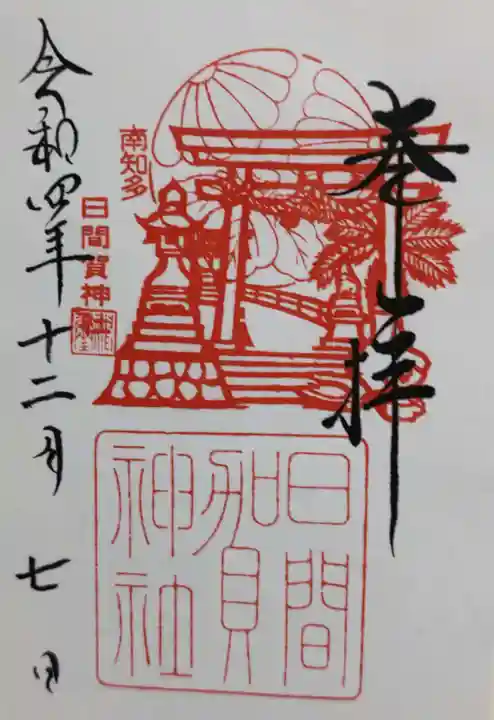 奉拝
南知多
日間賀神
日間
賀
神社
令和四年十二月七日